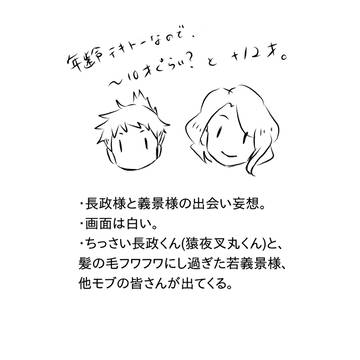 年齢テキトーなので、
〜10才ぐらい? と +12才。
・長政様と義景様の出会い妄想。
・画面は白い。
・ちっさい長政くん(猿夜叉丸くん)と、
髪の毛フワフワにし過ぎた若義景様、
他モブの皆さんが出てくる。